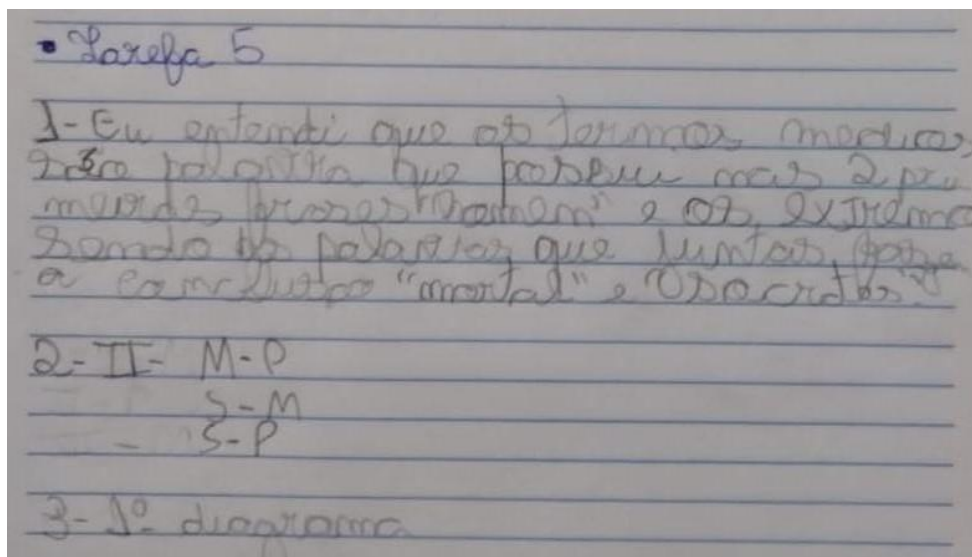 • Tarefa 5
1- Eu entendi que os termos medios
são palavra que possem nas 2 pri
meiras frases "homem" e os extremo
sendo as palavras que juntas, faze
a conclusão "mortal" e
2- II- M-P
S-M
- S-P
3- 1º diagrama